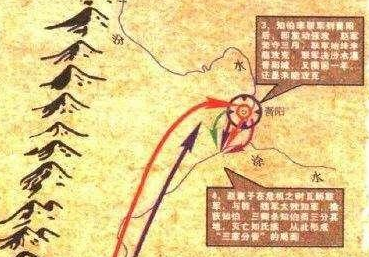 汾
水
3、知伯率联军到晋阳
后，即发动强攻，赵军
坚守三月，联军始终未
能攻克。联军决汾水灌
晋阳城，又围困一年，
还是未能攻克
晋阳
涂
水
4、赵襄子在危机之时瓦解联
军，与韩、魏军大败知军，擒
杀知伯。三家共知伯而三分其
地，灭亡知氏族，从此形成
“三家分晋”的局面